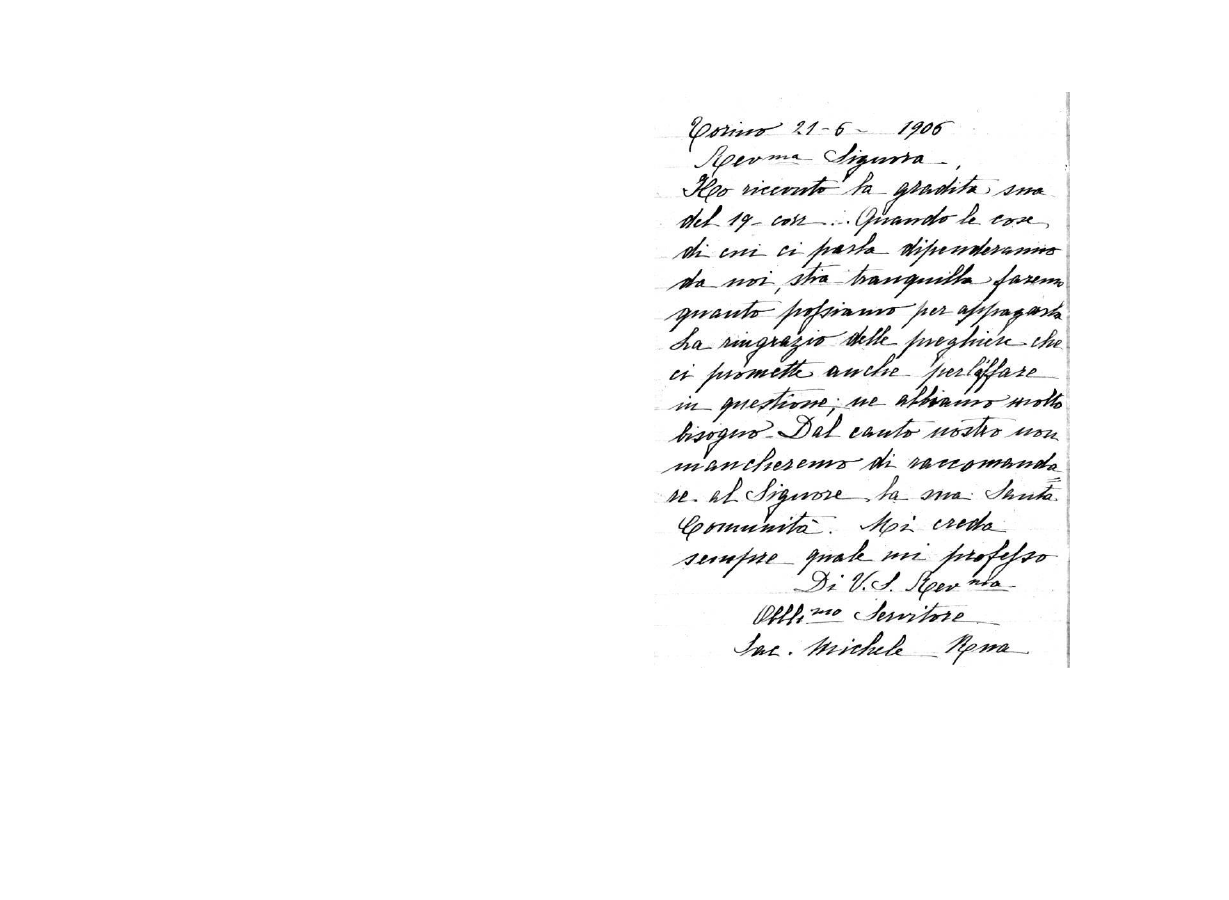 Torino 21-6- 1906
Rev.ma Signora,
Ho ricevuto la gradita sua
del 19 corr... Quando le cose
di cui ci parla dipenderanno
da noi, stia tranquilla faremo
quanto possiamo per appagarla
La ringrazio delle preghiere che
ci promette anche per l'affare
in questione; ne abbiamo molto
bisogno - Dal canto nostro non
mancheremo di raccomanda=
re al Signore la sua Santa
Comunità. Mi creda
sempre quale mi professo
Di V. S. Rev.ma
Obbl.mo Servitore
Sac. Michele Rua